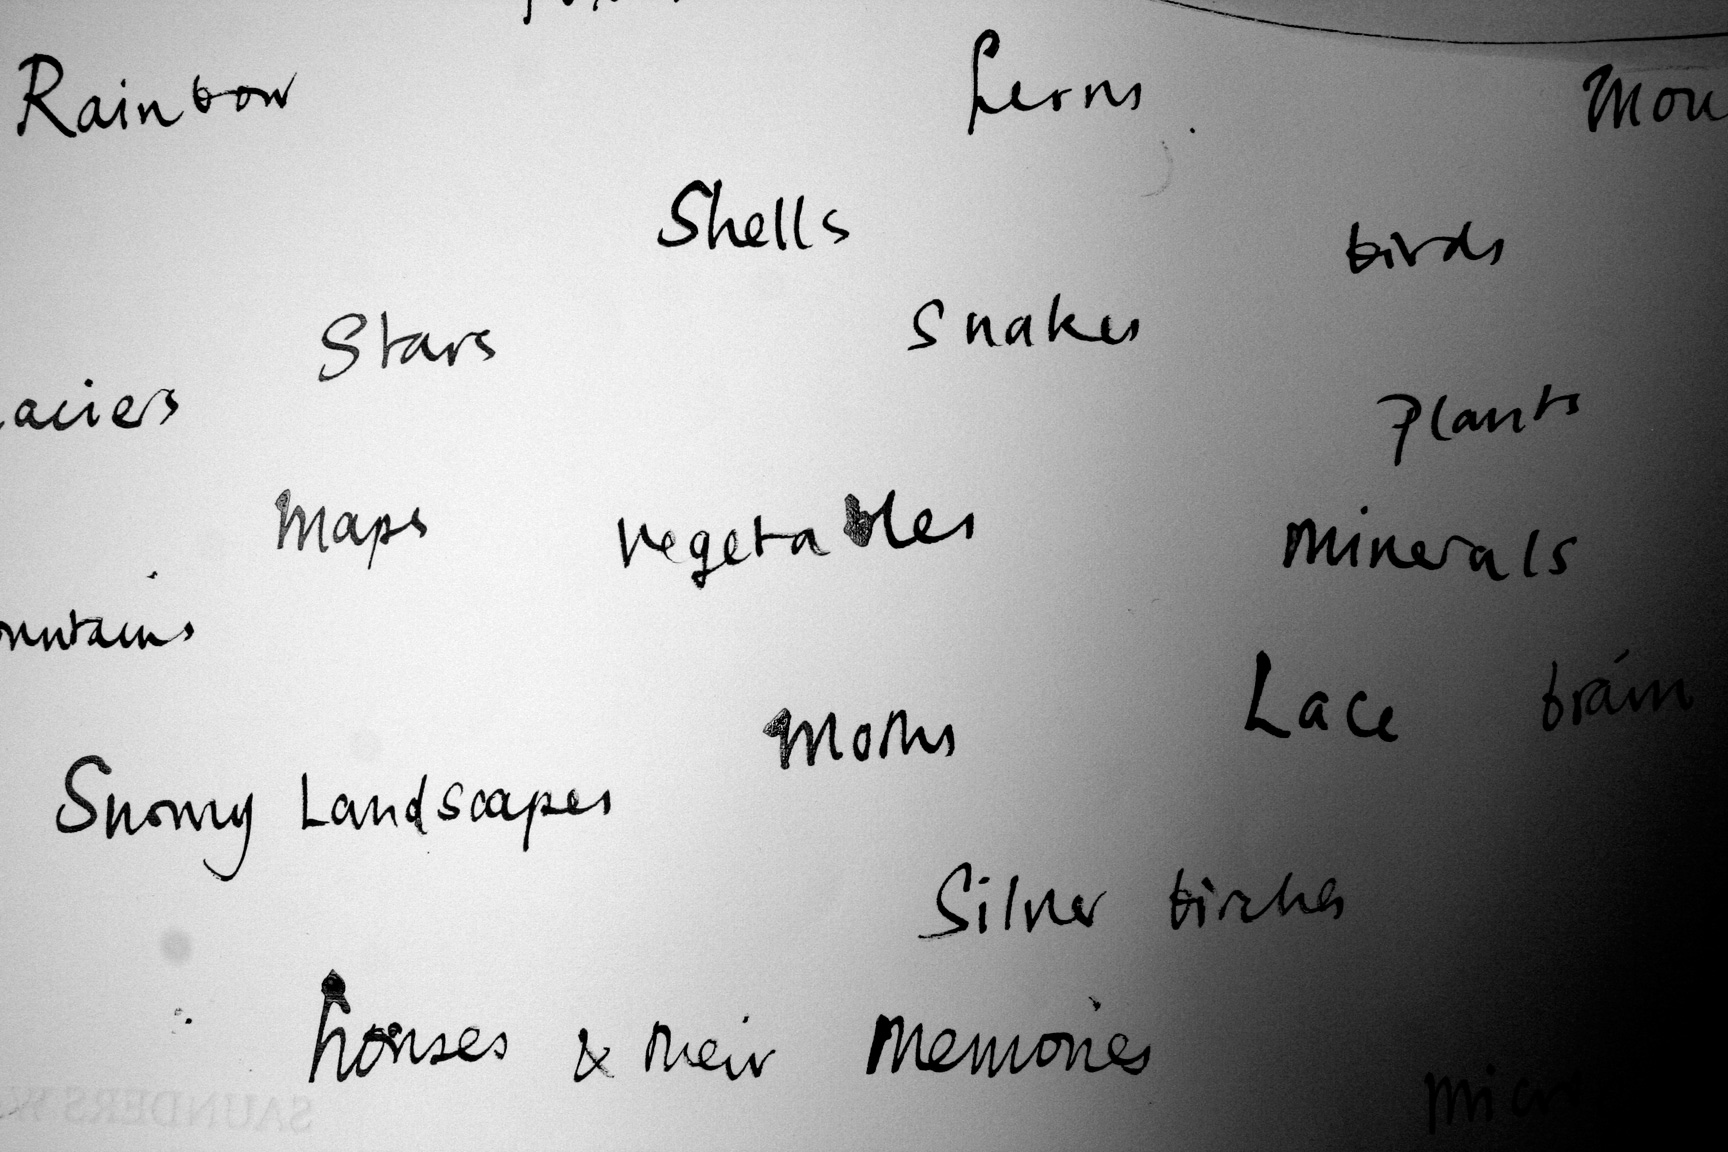 Rainbow
ferns
Mou
Shells
birds
Stars
Snakes
aciers
Plants
Maps
vegetables
Minerals
ountains
Lace
brain
Moths
Snowy Landscapes
Silver birches
houses & their Memories
SAUNDERS W